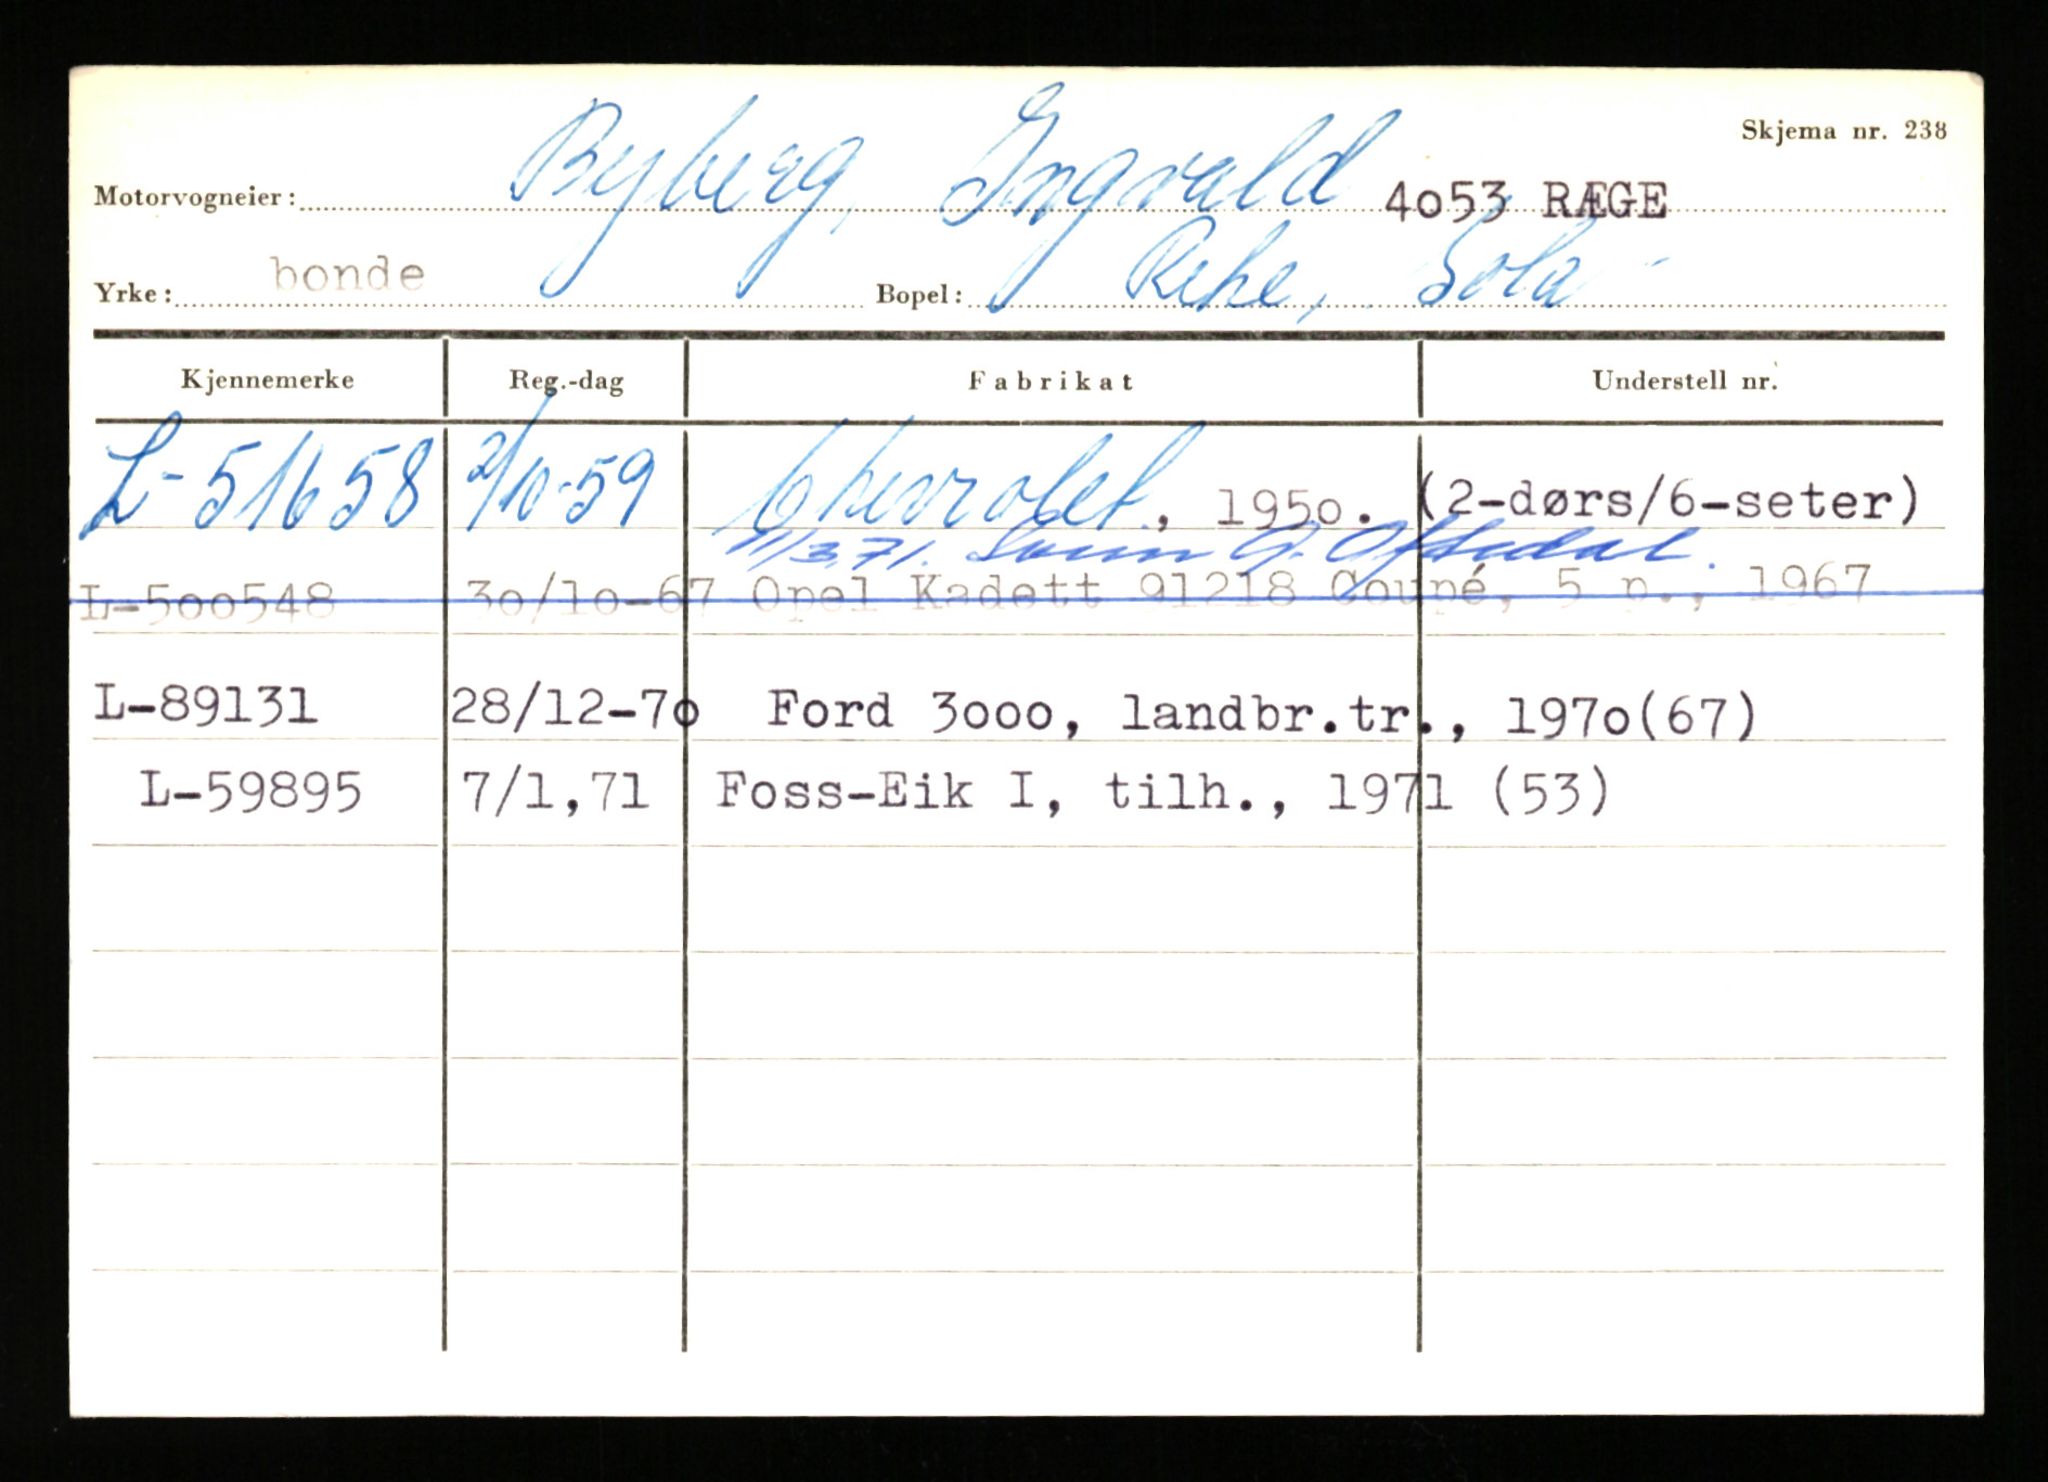 Skjema nr. 238
Motorvogneier: Byberg, Ingvald 4053 RÆGE
Yrke: bonde Bopel: Reke, Sola
Kjennemerke Reg.-dag Fabrikat Understell nr.
L-51658 2/10-59 Chevrolet, 1950. (2-dørs/6-seter)
11/3.71. G. Oftedal.
L-500548 30/10-67 Opel Kadett 91218 Coupé, 5 p., 1967
L-89131 28/12-70 Ford 3000, landbr.tr., 1970(67)
L-59895 7/1,71 Foss-Eik I, tilh., 1971 (53)